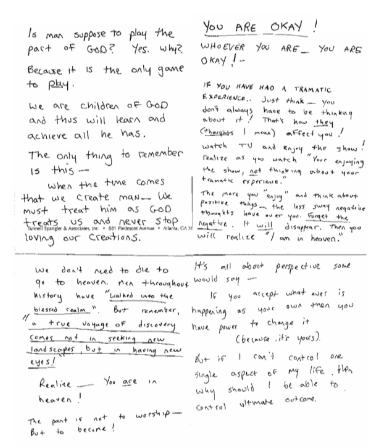 Is man suppose to play the
part of GOD? Yes. Why?
Because it is the only game
to play.
We are children of GOD
and thus will learn and
achieve all he has.
The only thing to remember
is this —
when the time comes
that we create man — We
must treat him as GOD
treats us and never stop
loving our creations.
YOU ARE OKAY!
WHOEVER YOU ARE — YOU ARE
OKAY! —
IF YOU HAVE HAD A TRAMATIC
EXPERIENCE.. Just think — you
don't always have to be thinking
about it! That's how they
(thoughts I mean) affect you!
watch TV and enjoy the show!
realize as you watch "Your enjoying
the show, not thinking about your
tramatic experience."
The more you "enjoy" and think about
positive things — the less sway negative
thoughts have over you. Forget the
negative. It will disappear. Then you
will realize "I am in heaven."
Spangler & Associates, Inc. • 881 Piedmont Avenue • Atlanta, GA
We don't need to die to
go to heaven. Men throughout
history have "walked into the
blessed realm". But remember,
"a true voyage of discovery
comes not in seeking new
landscapes, but in having new
eyes!"
Realize — You are in
heaven!
The point is not to worship —
But to become!
It's all about perspective some
would say —
If you accept what ever is
happening as your own then you
have power to change it
(because it's yours)
But if I can't control one
single aspect of my life, then
why should I be able to
control ultimate outcome.